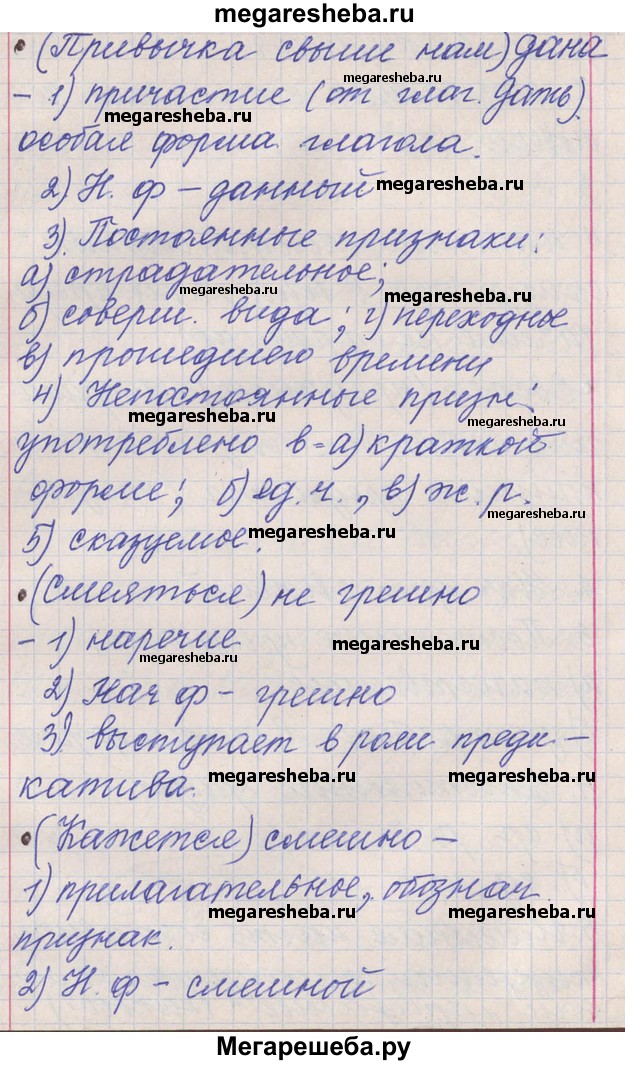 megaresheba.ru
• (Привычка свыше нам) дана
megaresheba.ru
– 1) причастие (от глаг. дать).
megaresheba.ru
особая форма глагола.
2) Н. ф – данный megaresheba.ru
3) Постоянные признаки:
а) страдательное;
megaresheba.ru megaresheba.ru
б) соверш. вида; г) переходные
в) прошедшего времени
4) Непостоянные призн:
megaresheba.ru megaresheba.ru
употреблено в = а) краткой
форме; б) ед. ч., в) ж. р.
megaresheba.ru
5) сказуемое. megaresheba.ru
• (Смеяться) не грешно
– 1) наречие megaresheba.ru
megaresheba.ru
2) Нач ф – грешно
3) выступает в роли преди –
катива. megaresheba.ru megaresheba.ru
• (Кажется) смешно –
1) прилагательное, обознач.
megaresheba.ru megaresheba.ru
признак.
2) Н. ф – смешной
Мегарешеба.ру